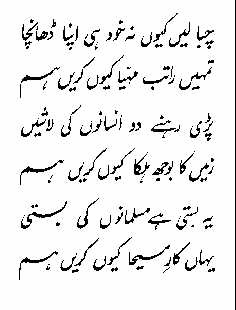 چبا لیں کیوں نہ خود ہی اپنا ڈھانچا
تمہیں راتب مہیّا کیوں کریں ہم
پڑی رہنے دو انسانوں کی لاشیں
زمیں کا بوجھ ہلکا کیوں کریں ہم
یہ بستی ہے مسلمانوں کی بستی
یہاں کارِ مسیحا کیوں کریں ہم